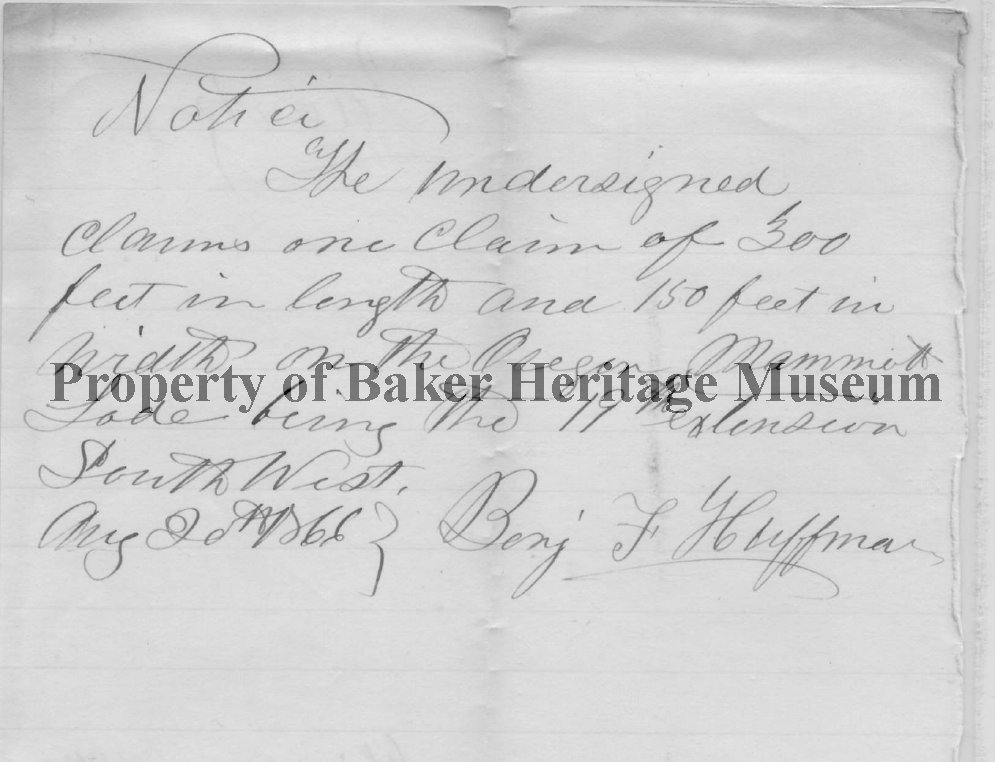 Notice
The undersigned
claims one claim of 300
feet in length and 150 feet in
width on the Oregon Mammoth
Property of Baker Heritage Museum
Lode being the 19th extension
South West.
Aug 20th 1866 } Benj F Huffman